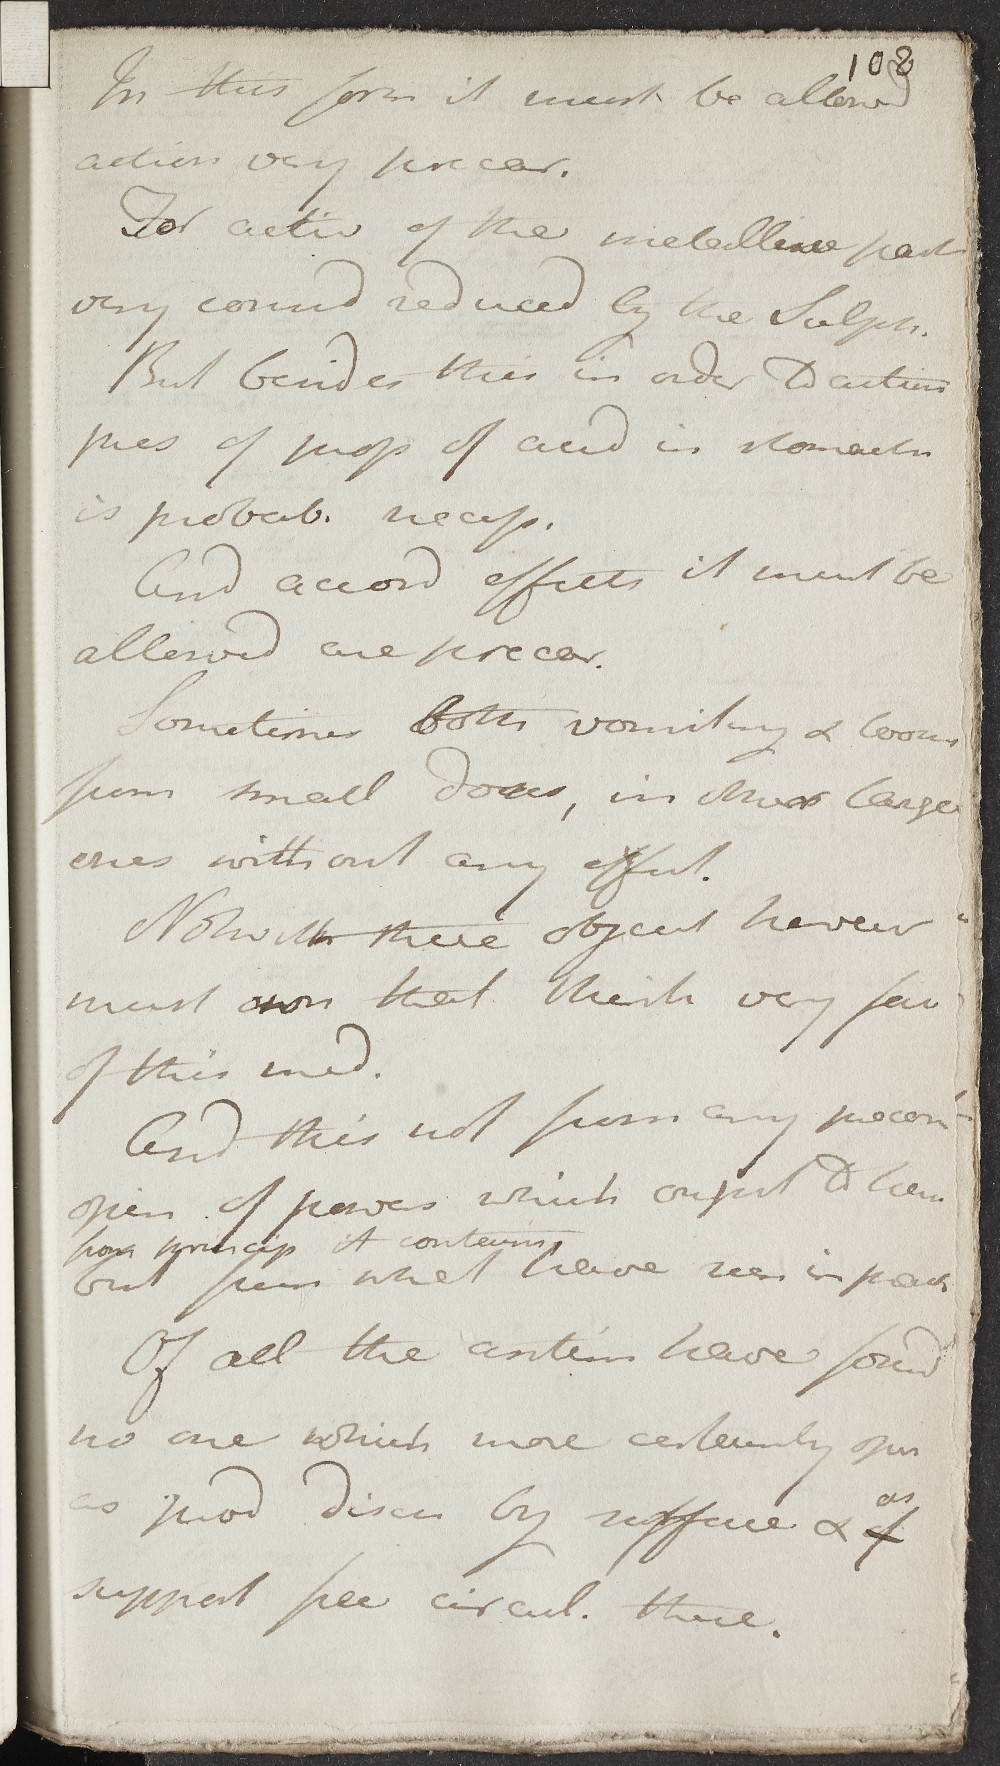 108
In this form it must be allowed
action very precar.
For activ of the metalline part
very consid reduced by the Sulph.
But besides this in order to action
pres of prop of acid in stomach
is probab. necess.
And accord effects it must be
allowed are precar.
Sometimes both vomiting & loosn
from small doses, in others large
ones without any effect.
Notwith these object however
must own that think very fav
of this med.
And this not from any precon
opin of powers which ought to have
from princip it contains
but from what have seen in pract
Of all the antim have found
no one which more certainly oper
as prod discu by surface & as
support free circul. there.